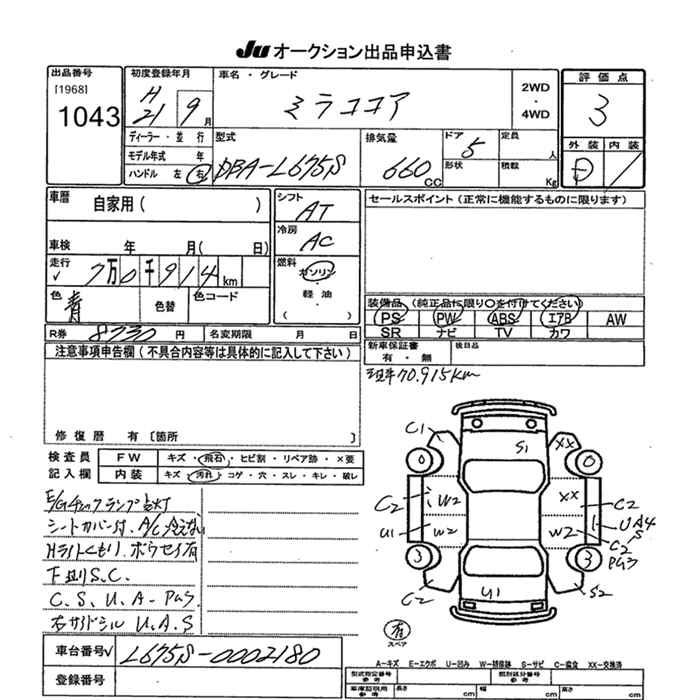 JU オークション出品申込書
出品番号
[1968]
1043
初度登録年月
H21 9月
車名・グレード
ミラココア
2WD
・
4WD
評価点
3
外装 内装
D /
ディーラー・並行
モデル年式 年
ハンドル 左 右
型式
DBA-L675S
排気量
660 CC
ドア 5
形状
定員 人
積載 Kg
車歴
自家用( )
車検 年 月( 日)
走行
√ 7万0千914km
色 青
色替
色コード
シフト
AT
冷房
AC
燃料
ガソリン
・
軽油
( )
セールスポイント(正常に機能するものに限ります)
装備品(純正品に限り○を付けてください)
PS PW ABS エアB AW
SR ナビ TV カワ
R券 8730円
名変期限 月 日
新車保証書
有・無
後日品
注意事項申告欄(不具合内容等は具体的に記入して下さい)
70.915km
修復歴 有〔箇所 〕
検査員
記入欄
FW キズ・飛石・ヒビ割・リペア跡・×要
内装 キズ・汚れ・コゲ・穴・スレ・キレ・破レ
E/Gチェックランプ点灯
シートカバー付、A/C冷えない
Hライトくもり、ボウセイ有
下廻りS.C.
C.S、U.A-Pあり.
右サイドシルU.A.S
C1
S1
XX
0
0
C2
W2
XX
C2
U1
W2
W2
1
UA4
S
C2
3
3
C2
U1
S2
有
スペア
車台番号√ L675S-0002180
登録番号
A-キズ E-エクボ U-凹み W-補修跡 S-サビ C-腐食 XX-交換済
型式指定番号
参考
類別区分番号
参考
車庫証明用
参考
長さ cm
幅 cm
高さ cm